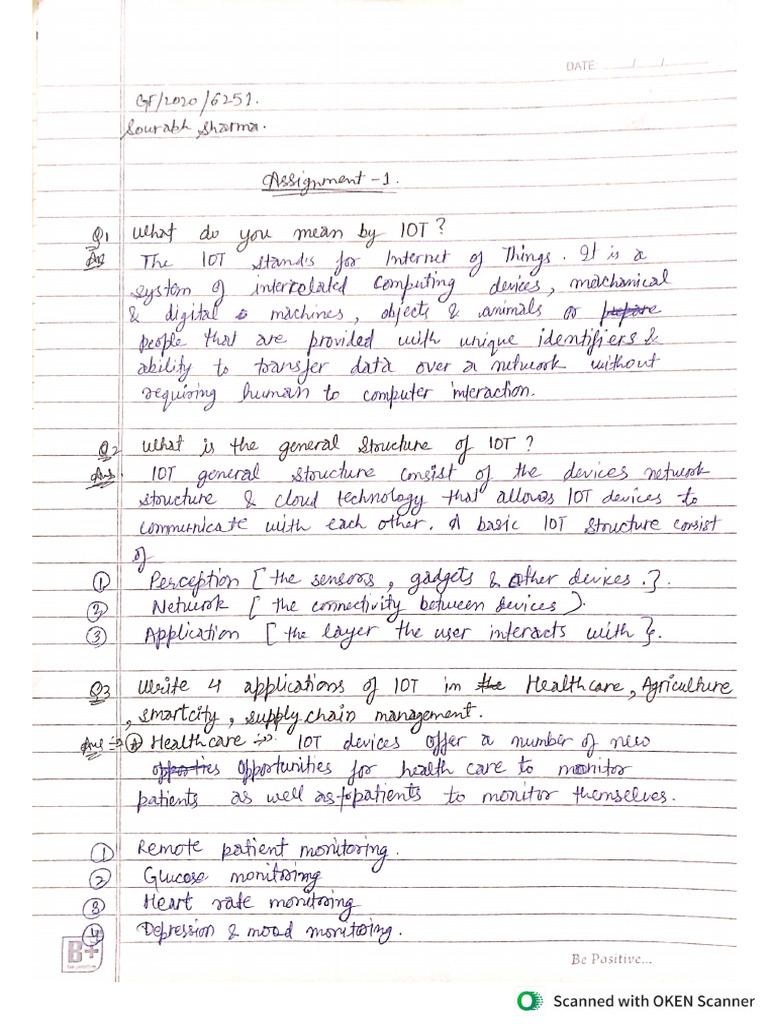 DATE: ____/____/____
GF/2020/6251.
Sourabh Sharma.
Assignment -1.
Q1 What do you mean by IOT?
Ans The IOT stands for Internet of Things. It is a
system of interrelated computing devices, mechanical
& digital machines, objects & animals or prepare
people that are provided with unique identifiers &
ability to transfer data over a network without
requiring human to computer interaction.
Q2 What is the general structure of IOT?
Ans. IOT general structure consist of the devices network
structure & cloud technology that allows IOT devices to
communicate with each other. A basic IOT structure consist
of
① Perception [the sensors, gadgets & other devices.}.
② Network [the connectivity between devices).
③ Application [the layer the user interacts with}.
Q3 Write 4 applications of IOT in the Healthcare, Agriculture
, smartcity, supply chain management.
Ans :-> Ⓐ Healthcare :-> IOT devices offer a number of new
opporties opportunities for health care to monitor
patients as well as patients to monitor themselves.
① Remote patient monitoring.
② Glucose monitoring
③ Heart rate monitoring
④ Depression & mood monitoring.
B+
be positive
Be Positive...
Scanned with OKEN Scanner